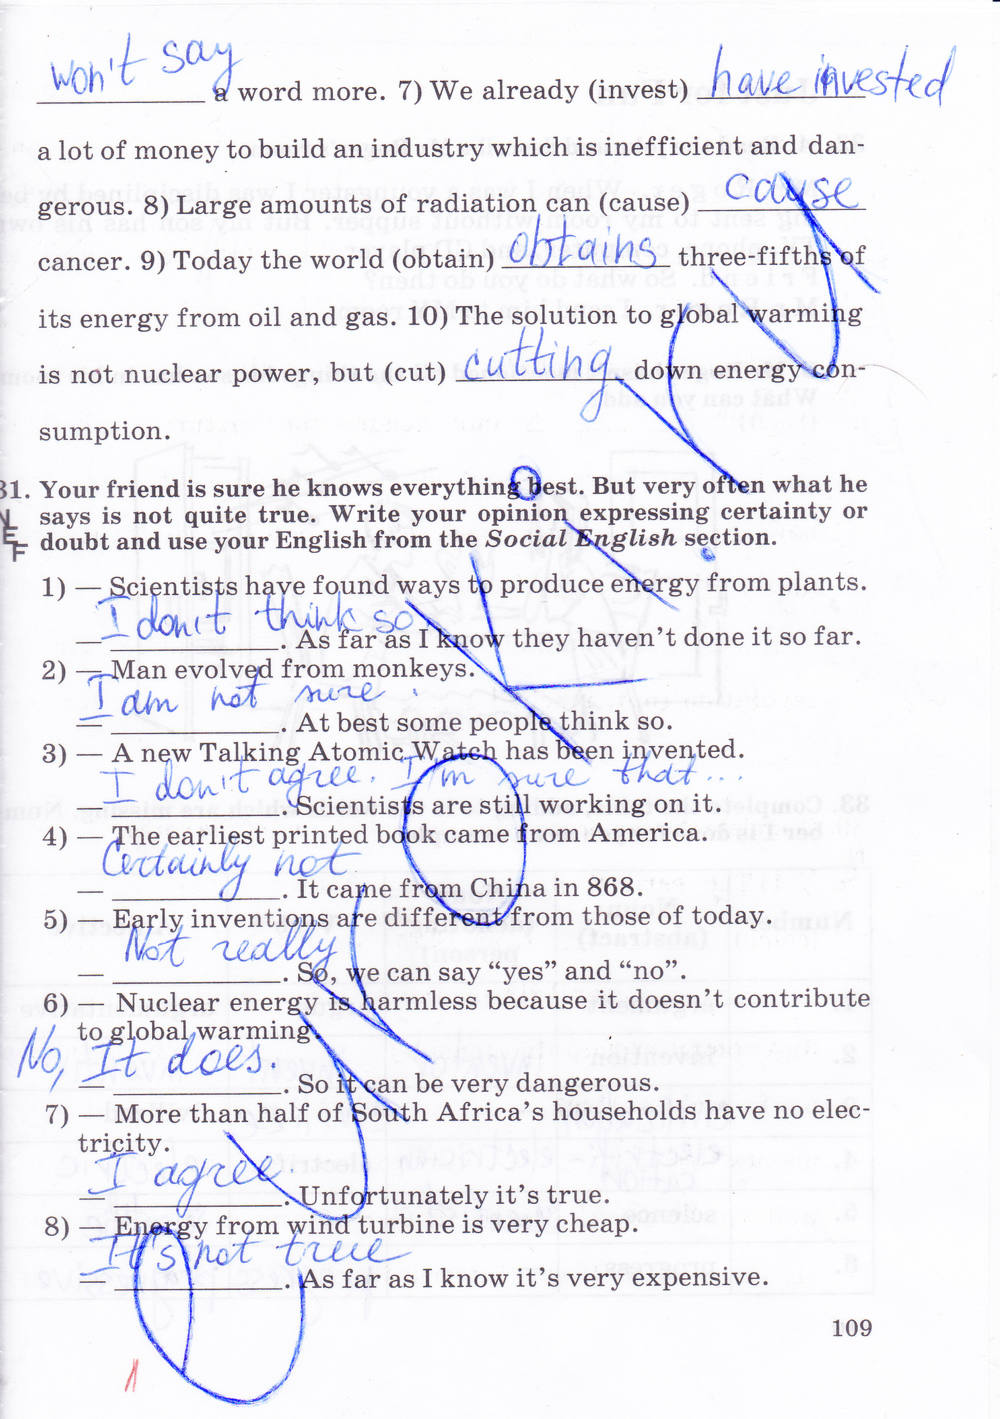 won't say a word more. 7) We already (invest) have invested
a lot of money to build an industry which is inefficient and dan-
gerous. 8) Large amounts of radiation can (cause) cause
cancer. 9) Today the world (obtain) obtains three-fifths of
its energy from oil and gas. 10) The solution to global warming
is not nuclear power, but (cut) cutting down energy con-
sumption.
31. Your friend is sure he knows everything best. But very often what he
says is not quite true. Write your opinion expressing certainty or
doubt and use your English from the Social English section.
1) — Scientists have found ways to produce energy from plants.
— I don't think so. As far as I know they haven't done it so far.
2) — Man evolved from monkeys.
— I am not sure. At best some people think so.
3) — A new Talking Atomic Watch has been invented.
— I don't agree. I'm sure that... Scientists are still working on it.
4) — The earliest printed book came from America.
— Certainly not. It came from China in 868.
5) — Early inventions are different from those of today.
— Not really. So, we can say “yes” and “no”.
6) — Nuclear energy is harmless because it doesn't contribute
to global warming.
— No, It does. So it can be very dangerous.
7) — More than half of South Africa's households have no elec-
tricity.
— I agree. Unfortunately it's true.
8) — Energy from wind turbine is very cheap.
— It's not true. As far as I know it's very expensive.
109